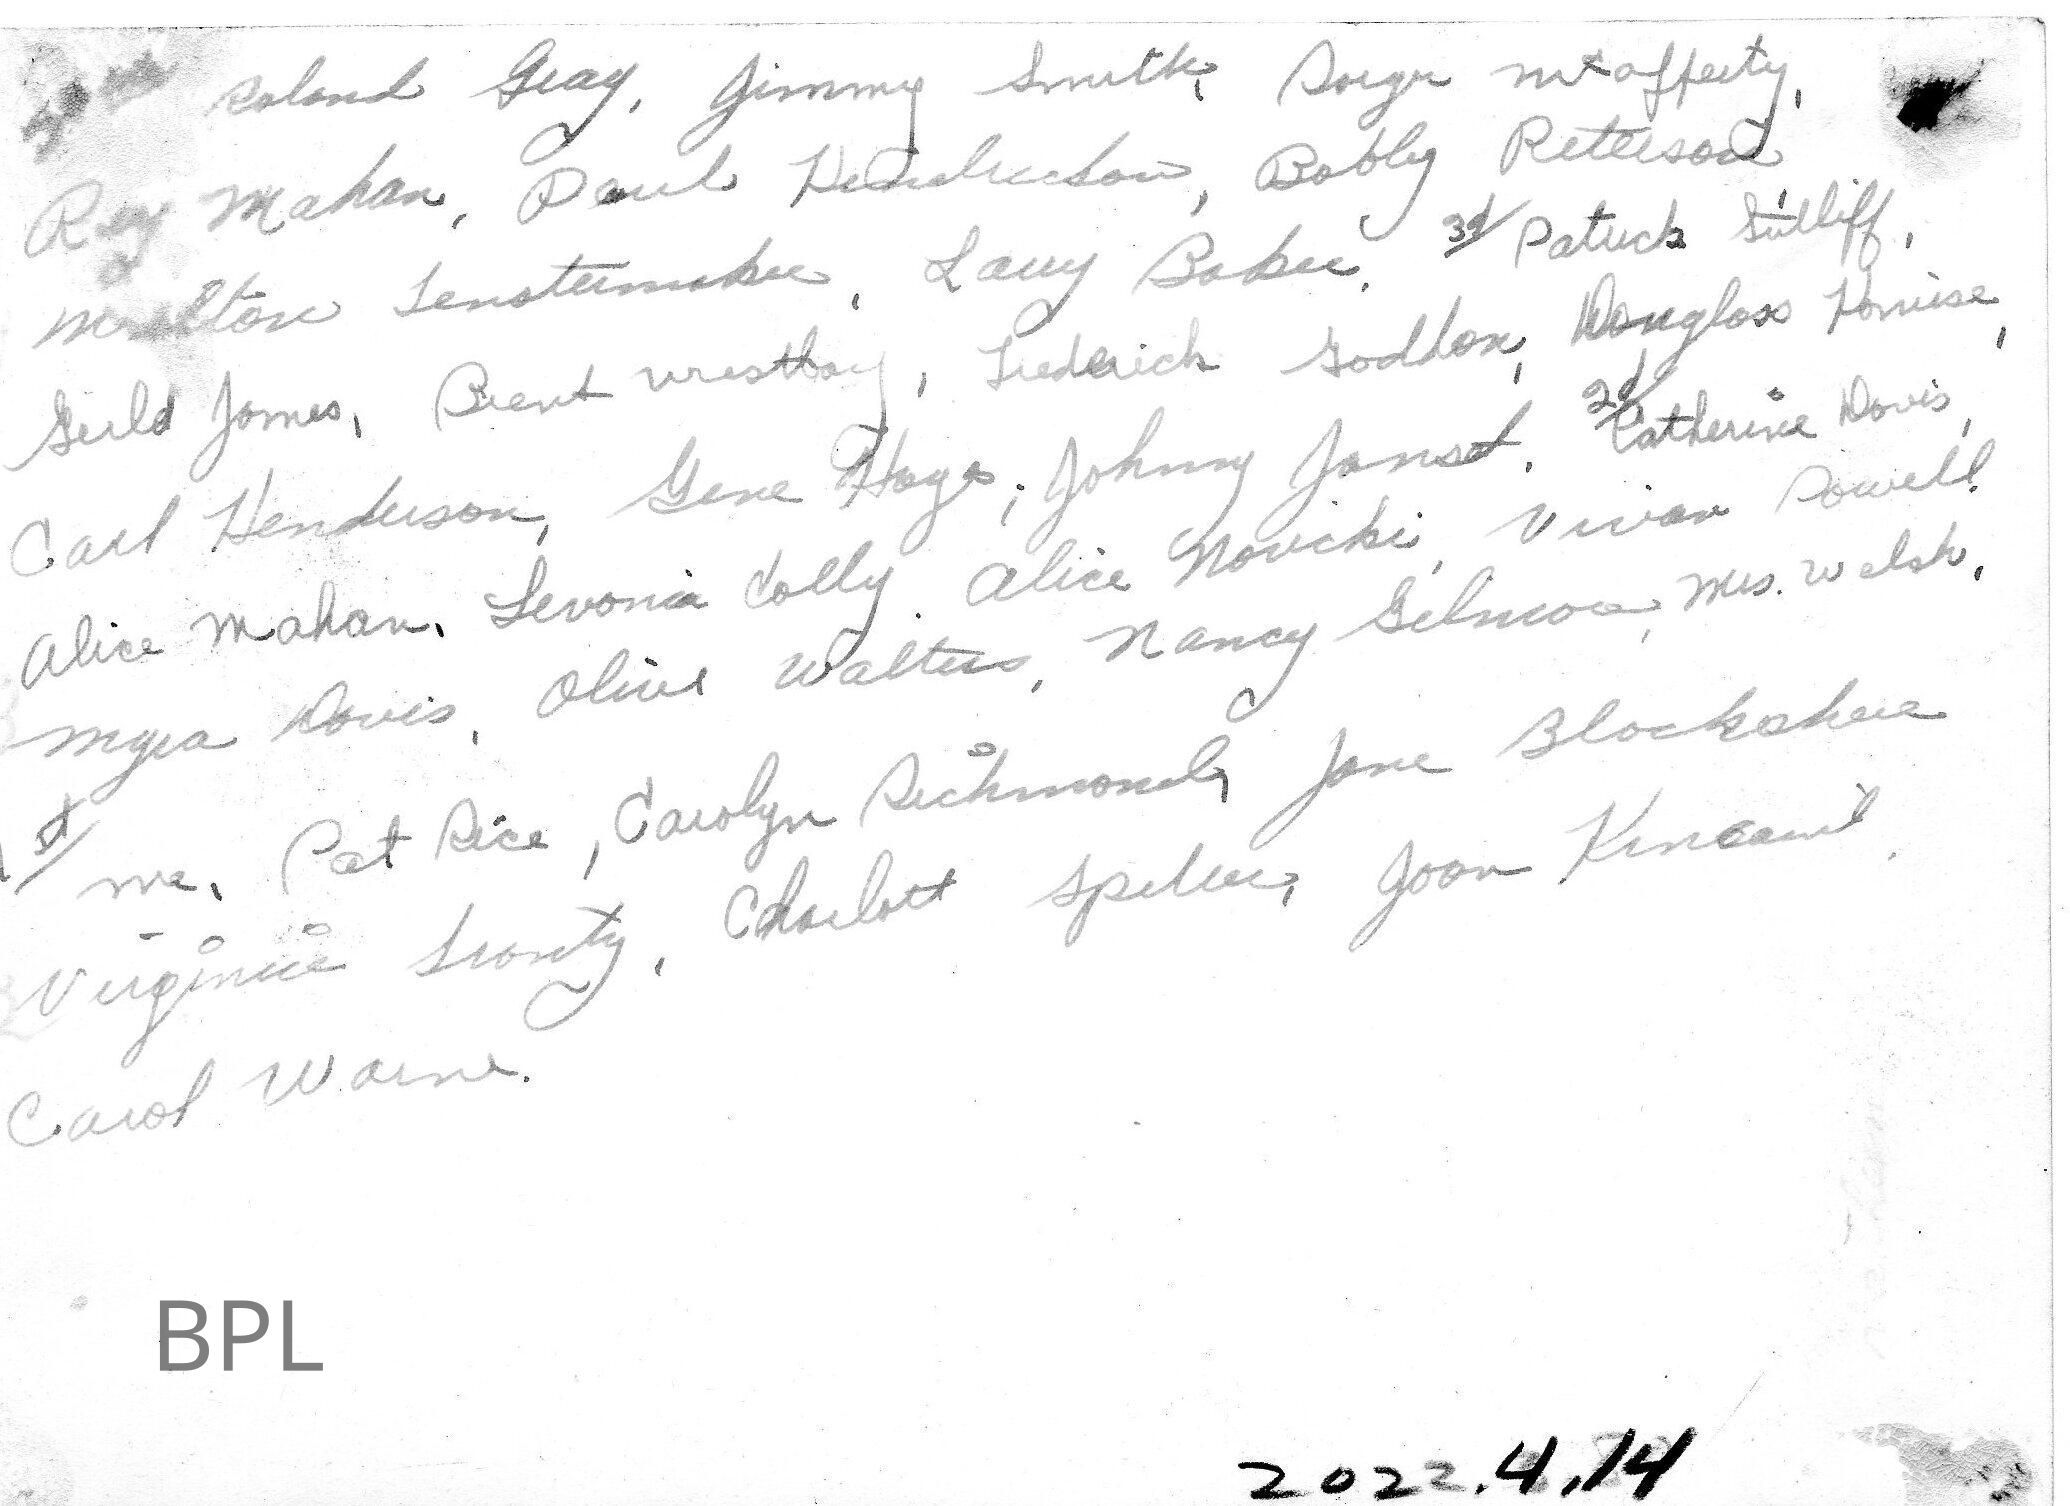 Roland Gray, Jimmy Smith, McCafferty,
Roy Mahan, Paul Hendrickson, Bobby Peterson
Milton Fenstermaker, Larry Baker, 3d/ Patrick Sutliff,
Gerld James, Brent Westbay, Frederick Goddon, Douglass Howise,
Carl Henderson, Gene Hays, Johnny Jansct, 2d/ Catherine Davis,
Alice Mahan, Levonia Colly, Alice Novicki, Vivian Powell,
Myra Davis, Olive Walters, Nancy Gilmore, Mrs. Walsh,
1st/ me, Pat Rice, Carolyn Richmond, Jane Blackshere
Virginia Charlott Spiller, Joan Kincaid,
Carol Warne.
BPL
2022.4.14